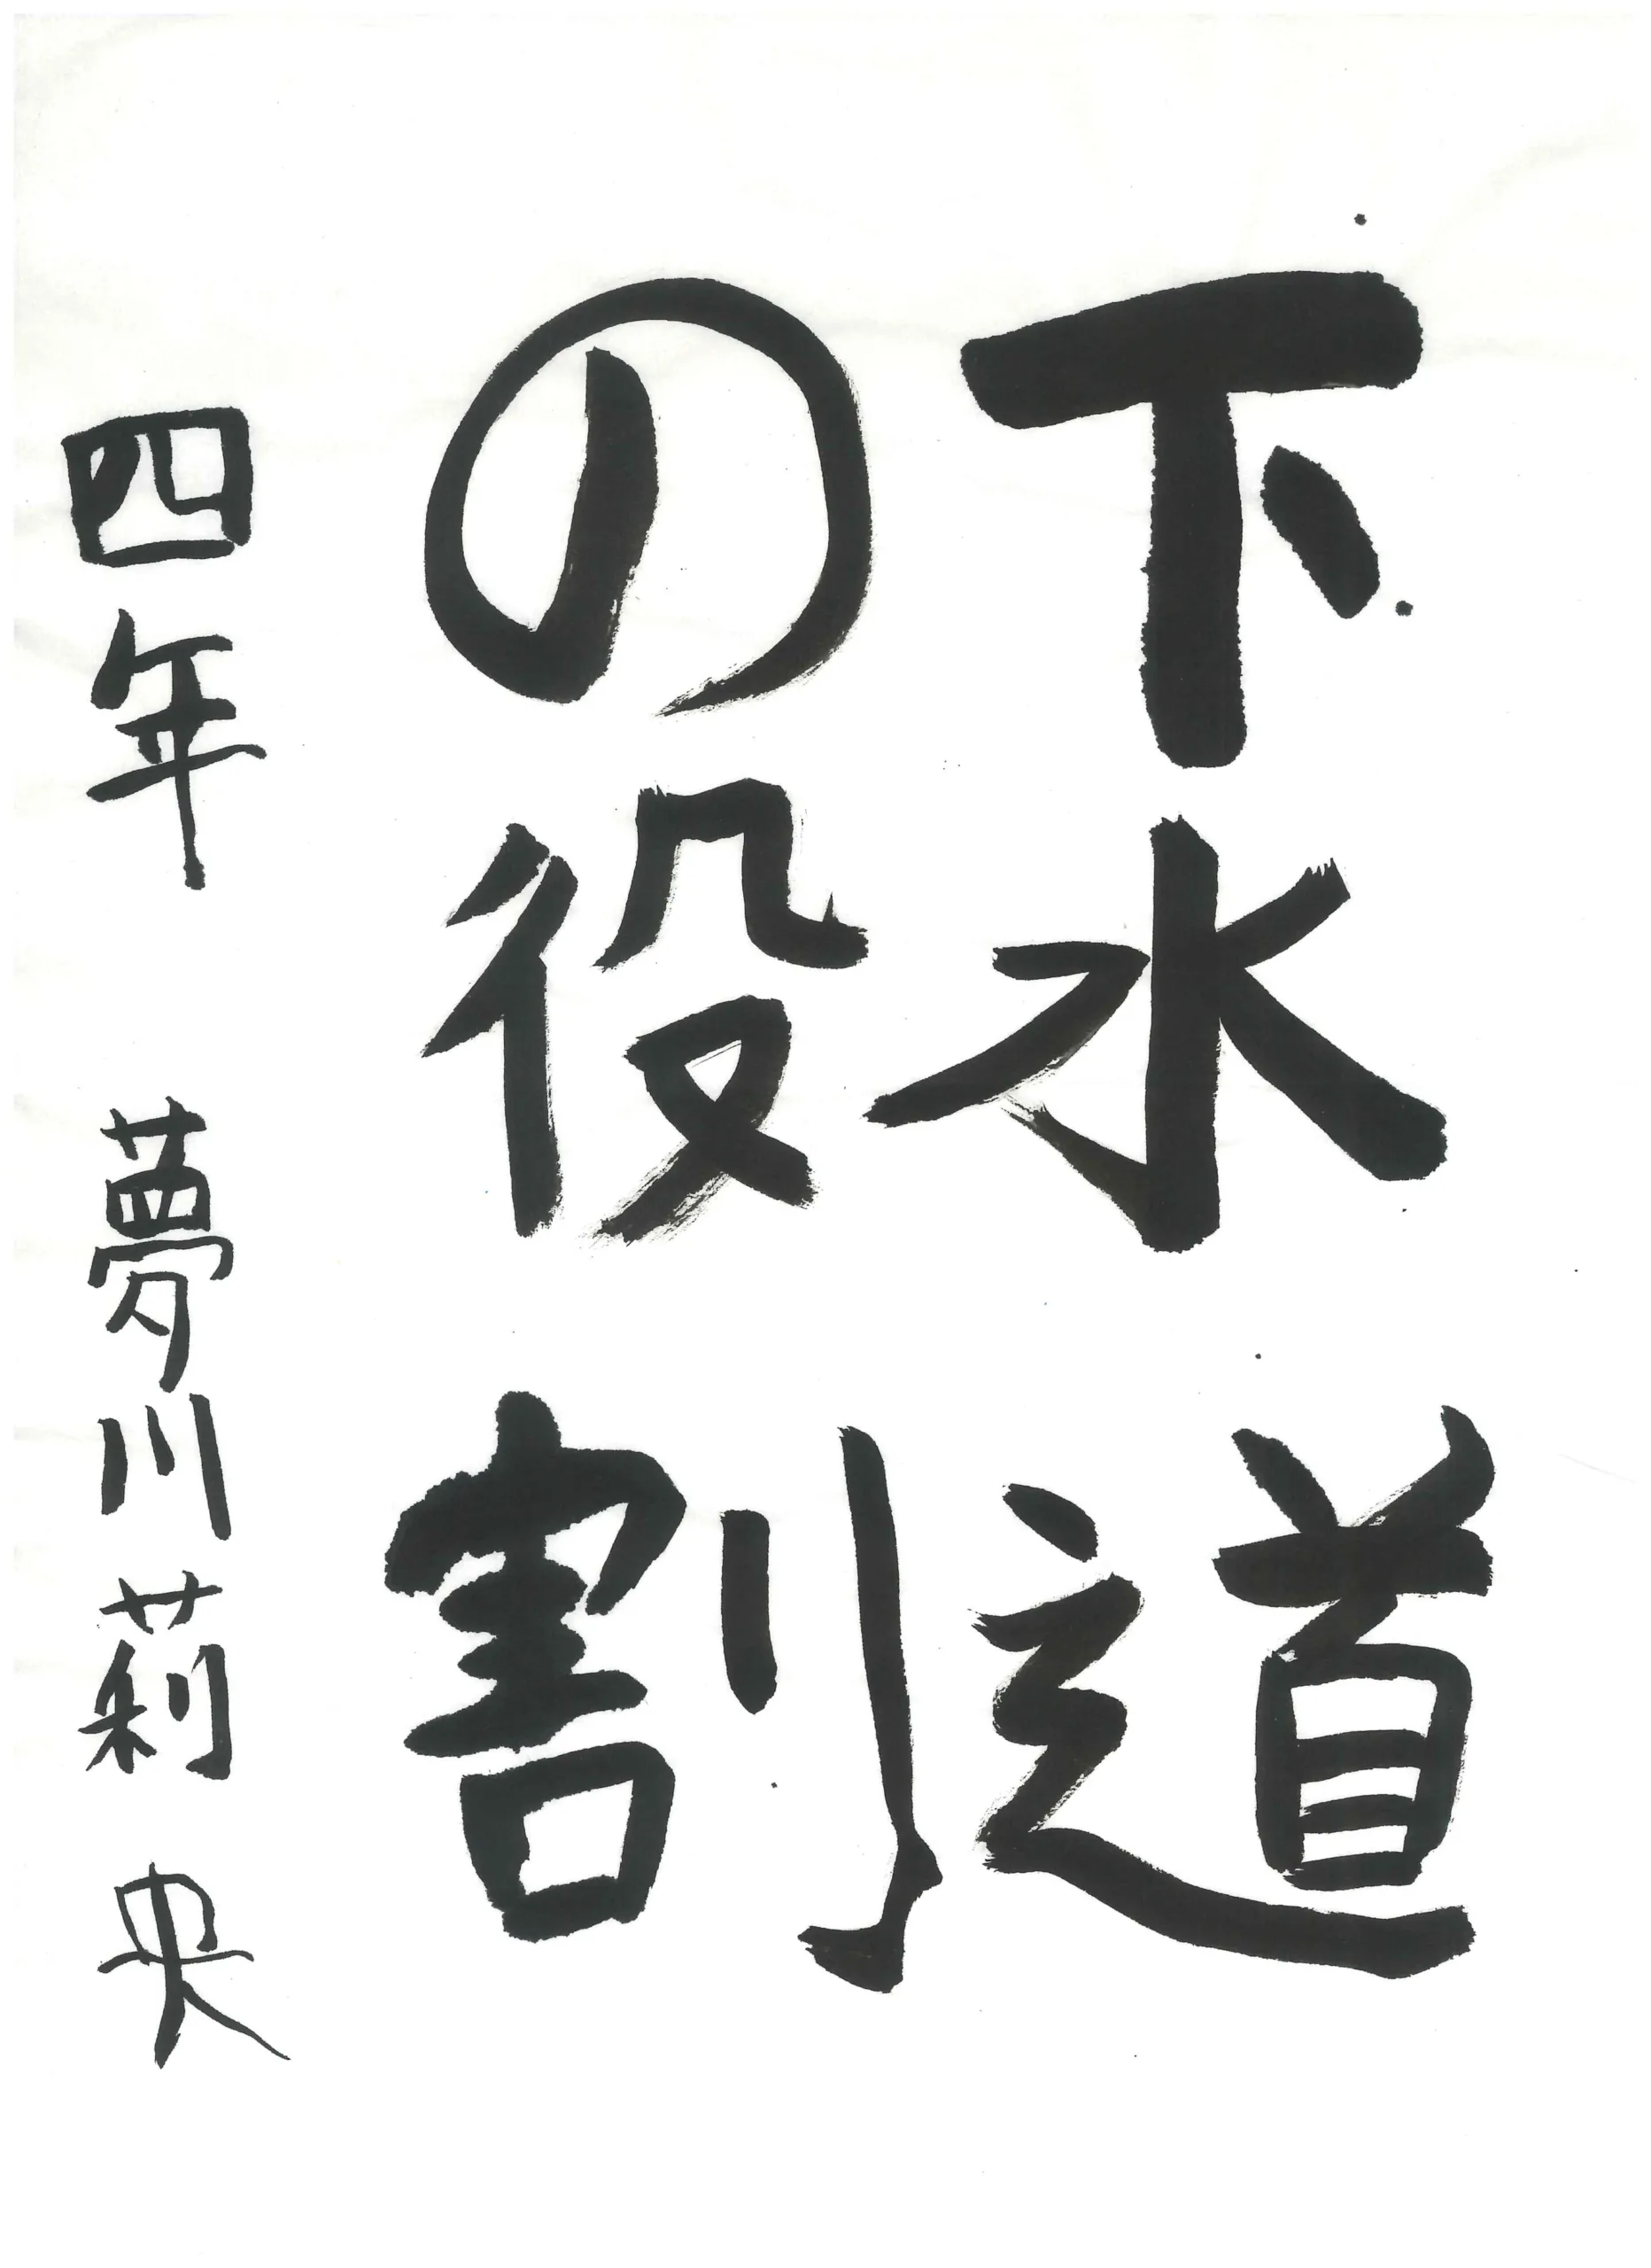 下水道
の役割
四年 夢川莉央